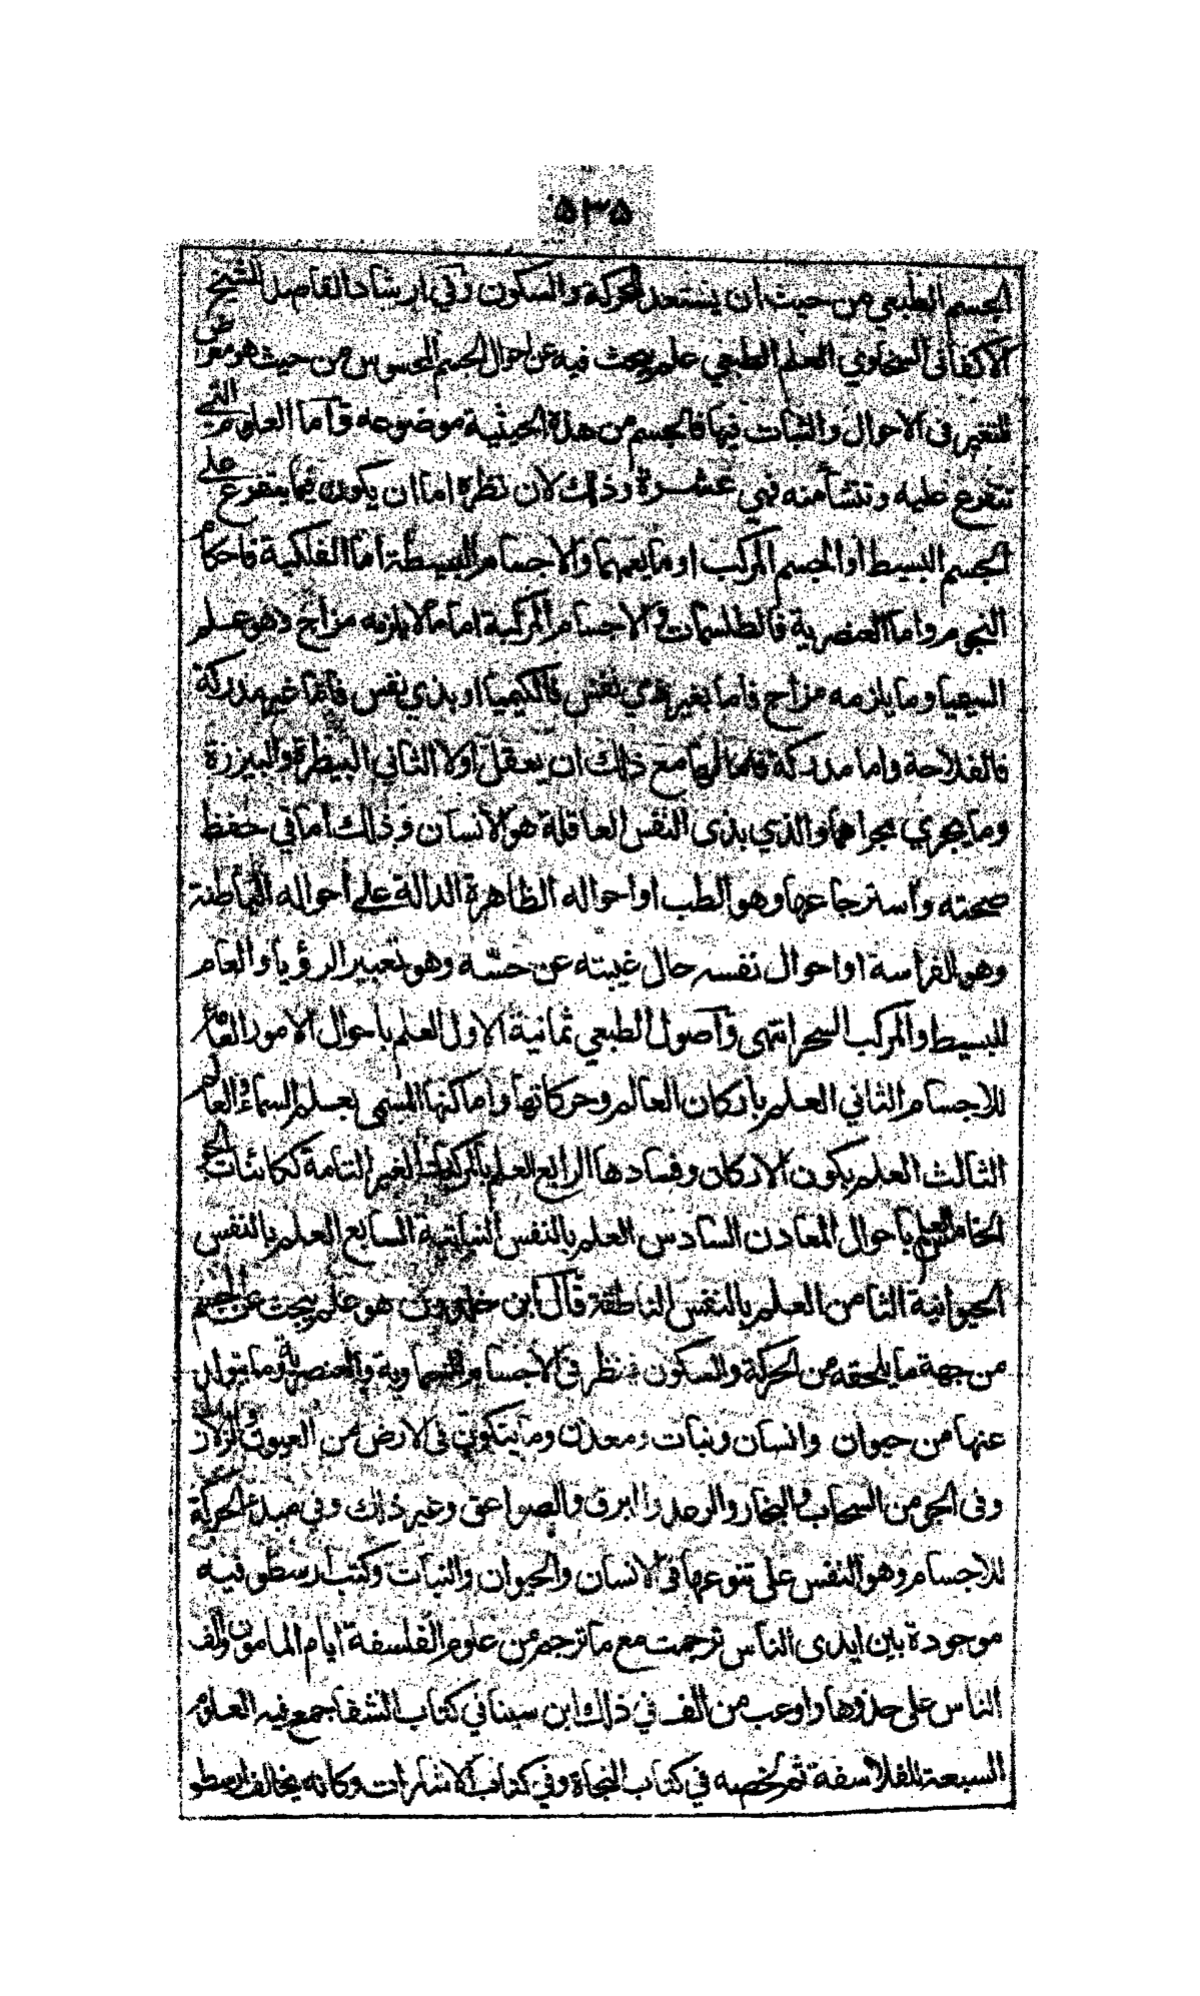 ٥٣٥
الجسم الطبعي من حيث ان يستعد للحركة والسكون وفي ارشاد القاصد للشيخ
الاكفاني السخاوي العلم الطبعي علم يبحث فيه عن احوال الجسم المحسوس من حيث هو معرض
للتغير في الاحوال والثبات فيها فالجسم من هذه الحيثية موضوعه واما العلوم التي
تتفرع عليه وتنشأ منه فهي عشرة وذلك لان نظره اما ان يكون فيما يتفرع على
الجسم البسيط او الجسم المركب او ما يعمهما والاجسام البسيطة اما الفلكية فاحكام
النجوم واما العنصرية فالطلسمات والاجسام المركبة اما ما لا يلزمه مزاج وهو علم
السيميا وما يلزمه مزاج فاما بغير ذي نفس فالكيميا او بذي نفس فاما غير مدركة
فالفلاحة واما مدركة فاما لها مع ذلك ان يعقل اولا الثاني البيطرة والبيزرة
وما يجري مجراهما والذي بذى النفس العاقلة هو الانسان وذلك اما في حفظ
صحته واسترجاعها وهو الطب او احواله الظاهرة الدالة على احواله الباطنة
وهو الفراسة او احوال نفسه حال غيبته عن حسّه وهو تعبير الرؤيا والعام
للبسيط والمركب السحر انتهى واصول الطبعي ثمانية الاول العلم باحوال الامور العامة
للاجسام الثاني العلم باركان العالم وحركاتها واماكنها المسمى بعلم السماء والعالم
الثالث العلم بكون الاركان وفسادها الرابع العلم بالمركبات الغير التامة ككائنات الجو
الخامس العلم باحوال المعادن السادس العلم بالنفس النباتية السابع العلم بالنفس
الحيوانية الثامن العلم بالنفس الناطقة قال ابن خلدون هو علم يبحث عن الجسم
من جهة ما يلحقه من الحركة والسكون فينظر في الاجسام السماوية والعنصرية وما يتولد
عنها من حيوان وانسان ونبات ومعدن وما يتكون في الارض من العيون والزلازل
وفى الجو من السحاب والبخار والرعد والبرق والصواعق وغير ذلك وفي مبدء الحركة
للاجسام وهو النفس على تنوعها في الانسان والحيوان والنبات وكتب ارسطو فيه
موجودة بين ايدى الناس ترجمت مع ما ترجم من علوم الفلسفة ايام المامون والف
الناس على حذوها واوعب من الف في ذلك ابن سينا في كتاب الشفا جمع فيه العلوم
السبعة للفلاسفة ثم لخصه في كتاب النجاة وفي كتاب الاشارات وكانه يخالف ارسطو